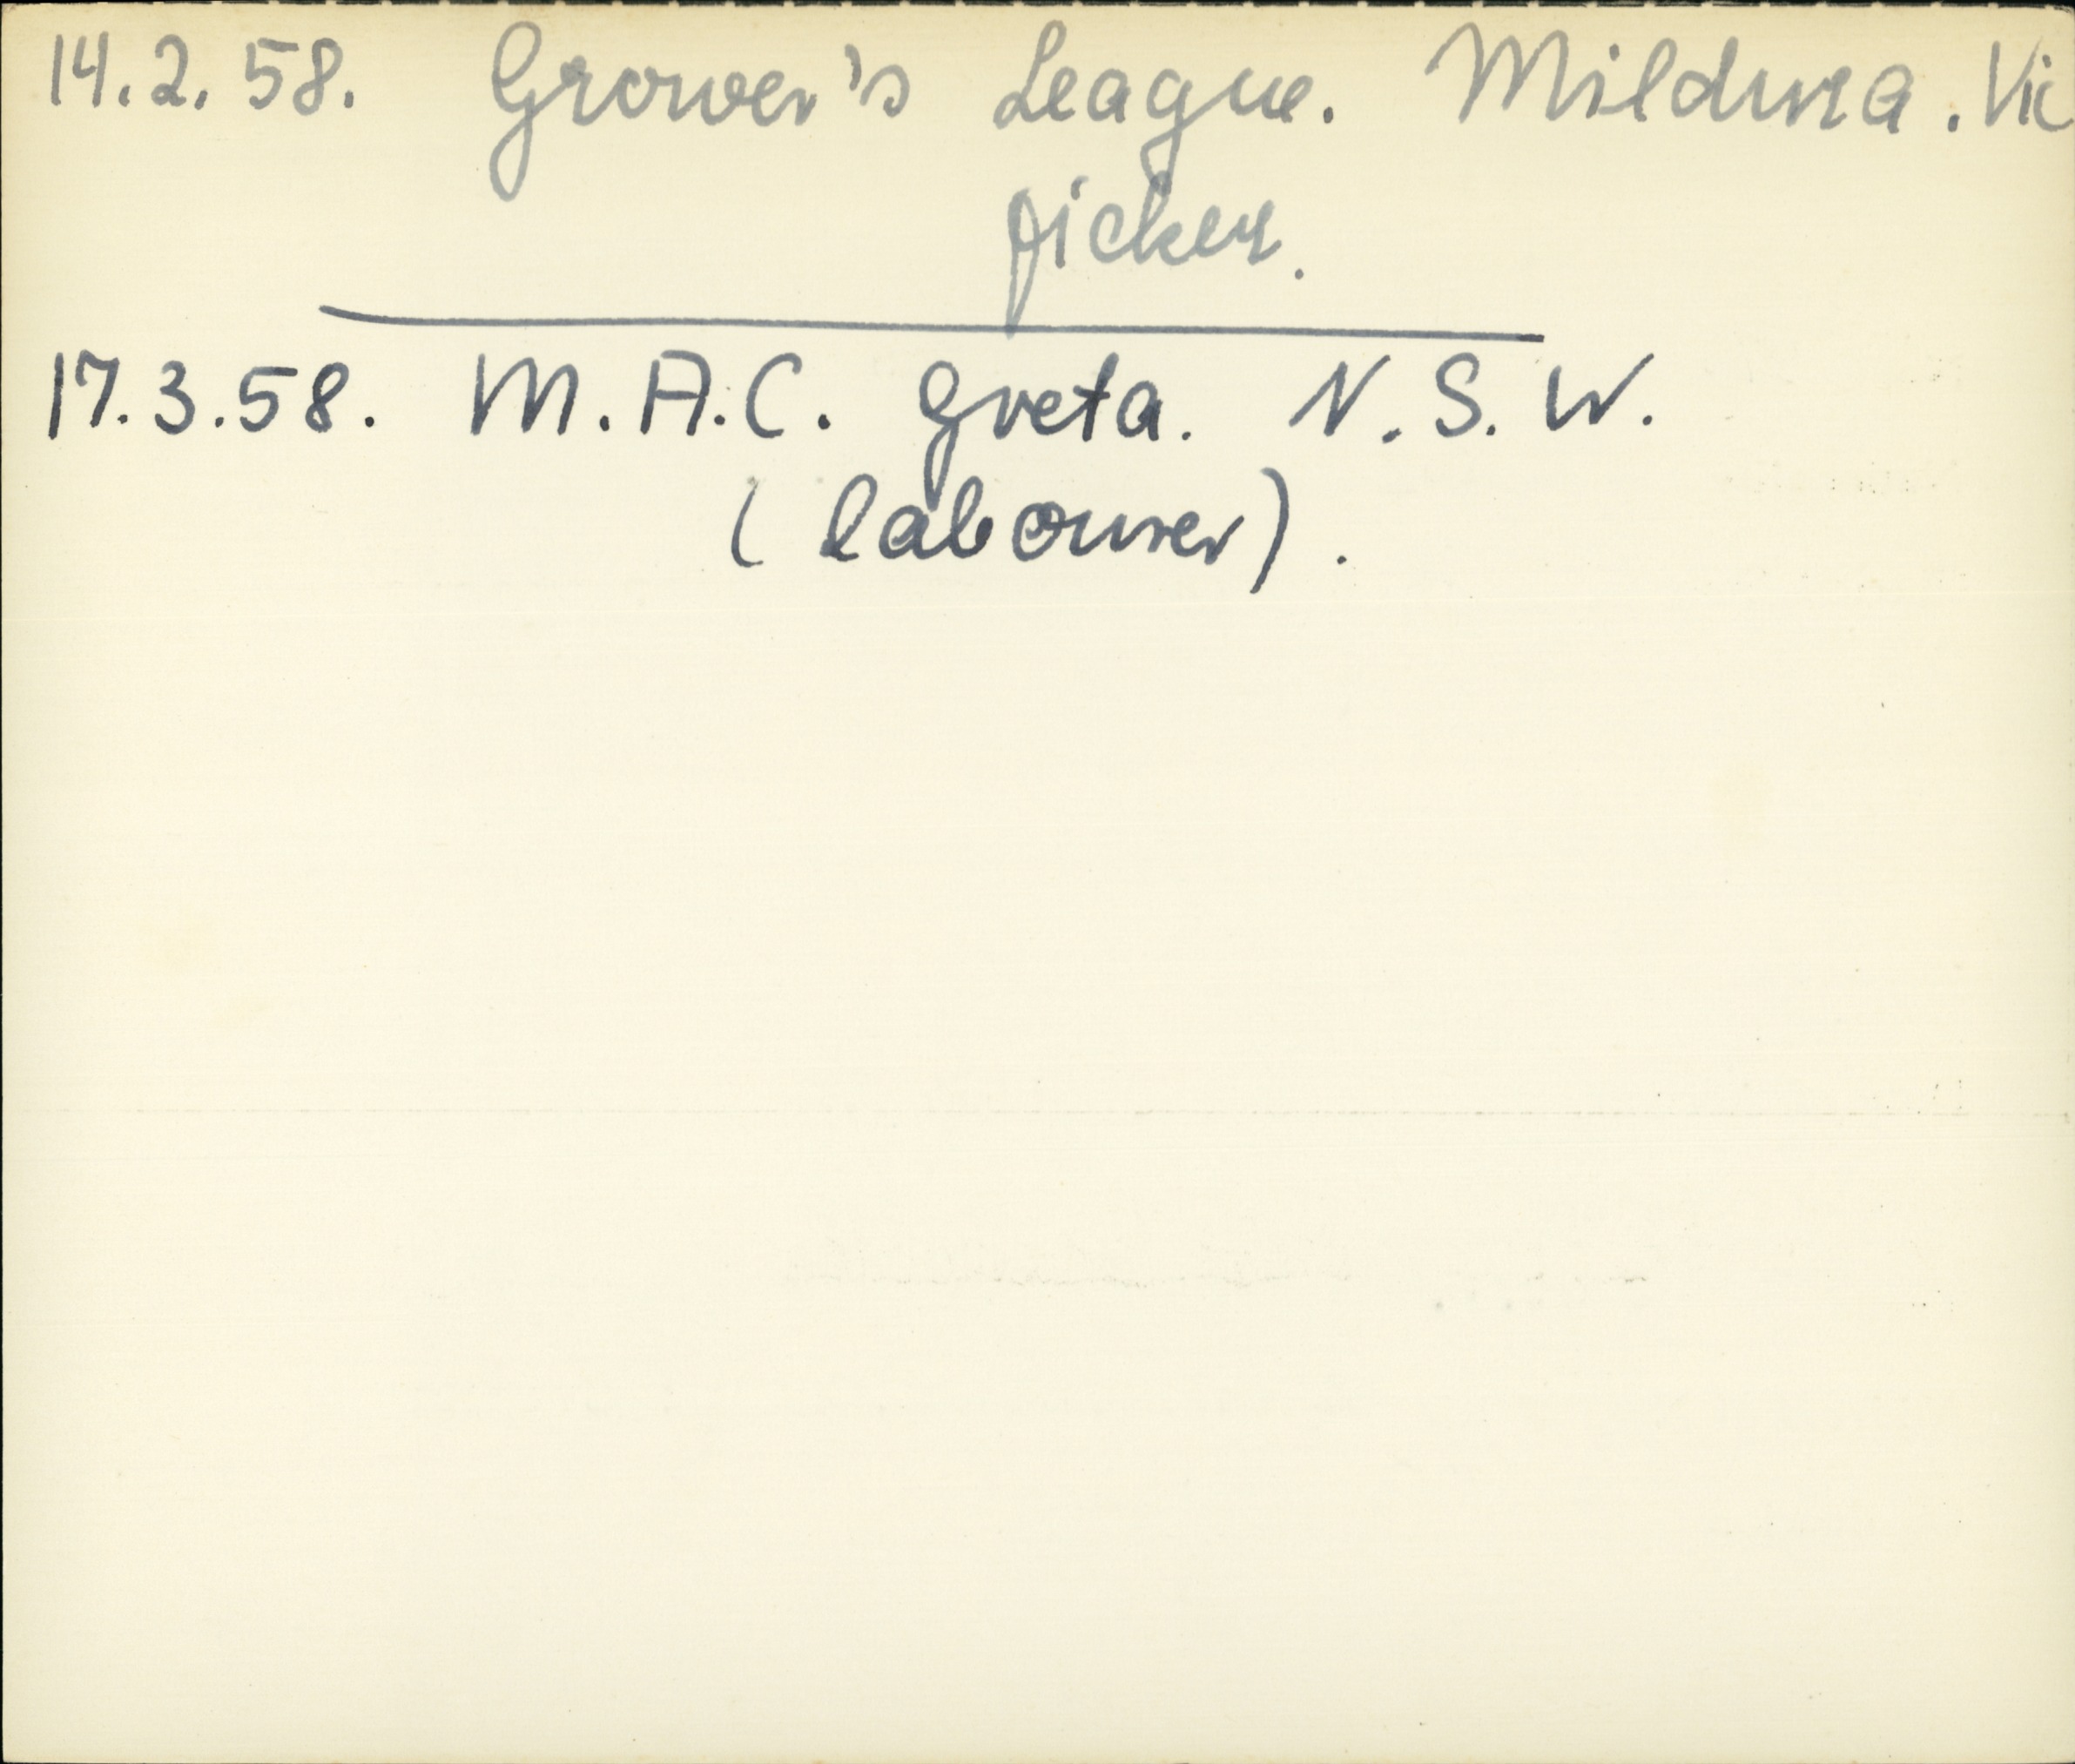 14.2.58. Grower's League. Mildura. Vic
picker.
17.3.58. M.A.C. Greta. N.S.W.
(labourer).